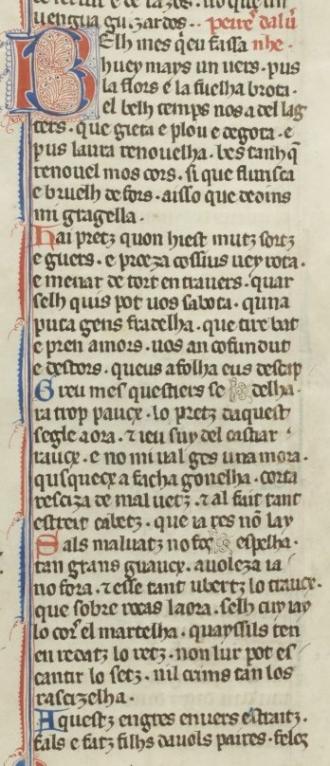 uengua guizardos. peire daluer
BElh mes qeu fassa nhe.
huey mays un uers. pus
la flors e la fuelha brota.
el belh temps nos a del lag
ters. que gieta e plou e degota. e
pus laura renouelha. bes tanh q̃
renouel mos cors. si que flurisca
e bruelh defors. aisso que dedins
mi gragella.
hai pretz quon hiest mutz sortz
e guers. e proeza cossius uey rota.
e menar de tort en trauers. quar
selh quis pot uos sabota. quna
puta gens fradelha. que tire bat
e pren amors. uos an cofundut
e destors. queus afolha eus descap
Greu mes questiers se delha.
ra trop paucx. lo pretz daquest
segle aora. ⁊ ieu suy del castiar
raucx. e no mi ual ges una mora.
qusquecx a facha gonelha. corta
resciza de maluetz. ⁊ al fait tant
estreit cabetz. que ia res nõ lay
Sals maluatz no fos espelha.
tan grans guaucx. auoleza ia
no fora. ⁊ esse tant ubertz lo traucx.
que sobre rocas laora. selh cuy lay
lo cor el martelha. quayssils ten
en redatz lo retz. non lur pot es
cantir lo setz. nil crims tan los
rascizelha.
Aquestz engres enuers estraitz.
fals e fatz filhs dauols paires. felos